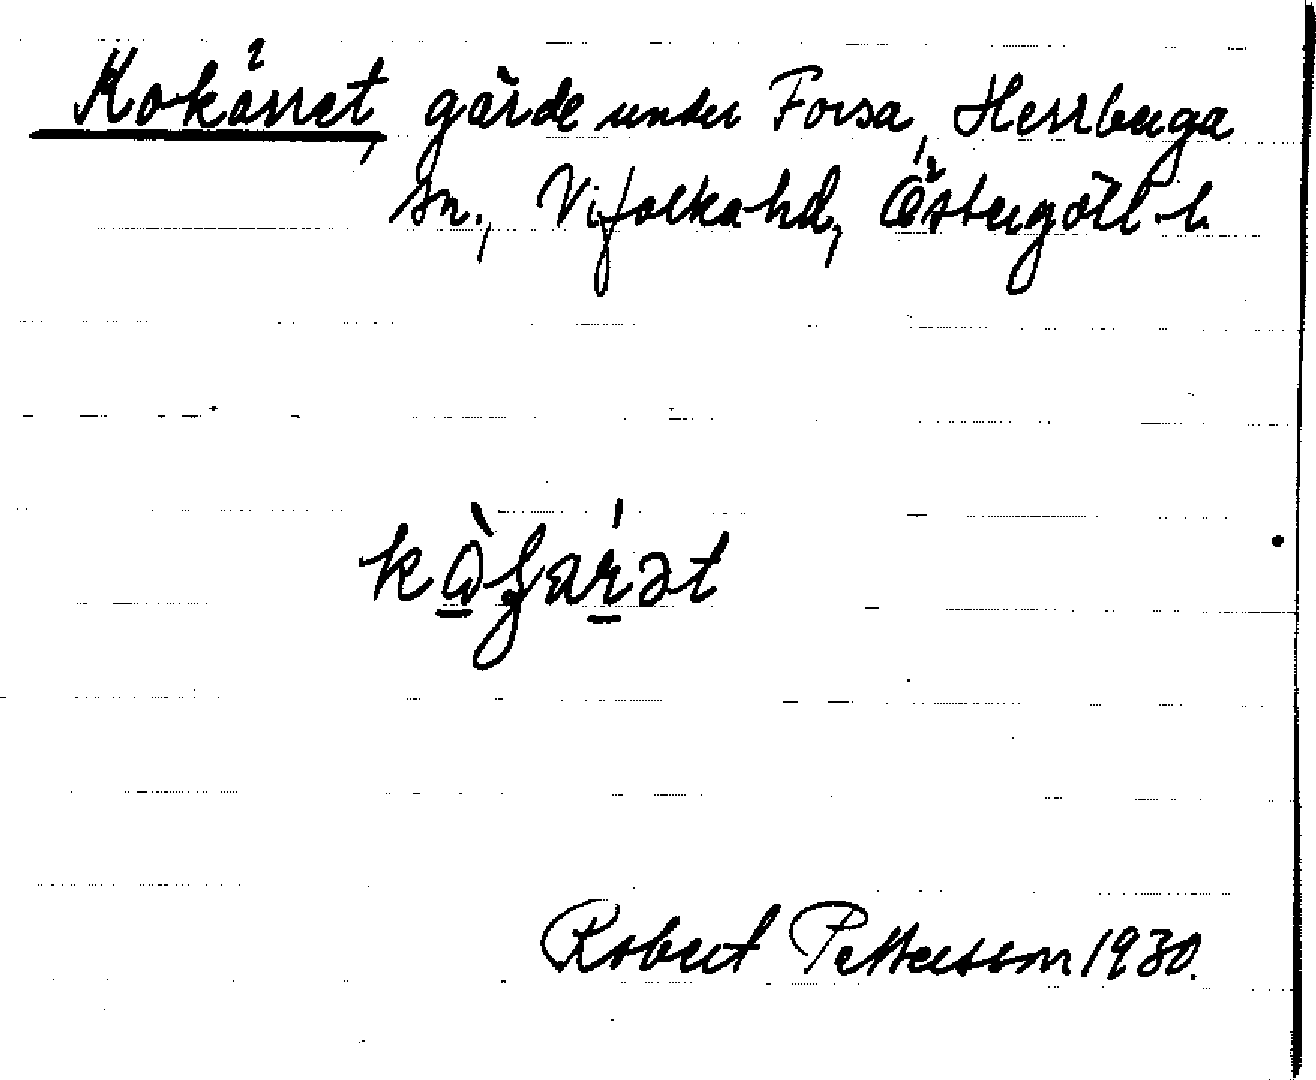 Kokärret, gärde under Forsa, Herrberga
sn., Vifolka hd, Östergötl. l.
Robert Pettersson 1930.